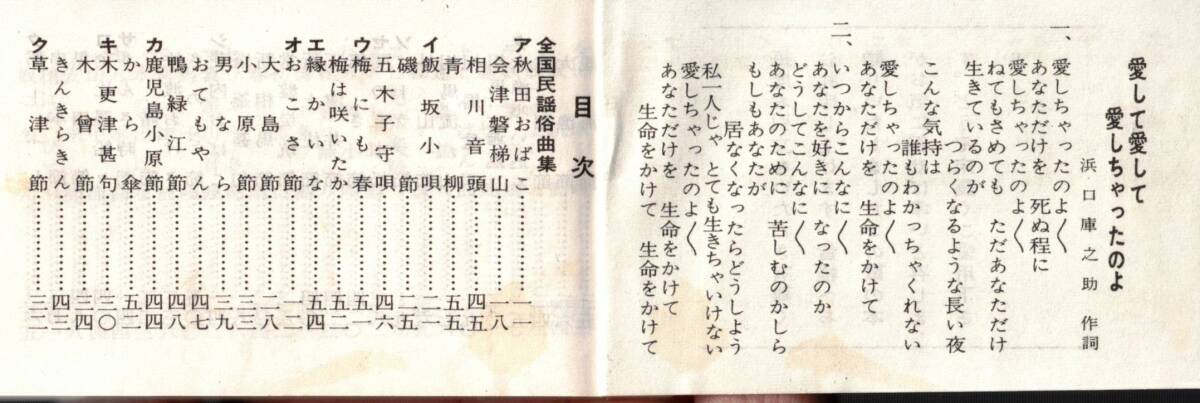 愛して愛して
愛しちゃったのよ
浜口庫之助 作詞
一、
愛しちゃったのよ〱
あなただけを 死ぬ程に
愛しちゃったのよ〱
ねてもさめても ただあなただけ
生きているのが
つらくなるような長い夜
こんな気持は
誰もわかっちゃくれない
愛しちゃったのよ〱
あなただけを 生命をかけて
二、
いつからこんなに〱
あなたを好きに なったのか
どうしてこんなに〱
あなたのために 苦しむのかしら
もしもあなたが
居なくなったらどうしよう
私一人じゃ とても生きちゃいけない
愛しちゃったのよ〱
あなただけを 生命をかけて
生命をかけて 生命をかけて
目次
全国民謡俗曲集
ア秋田おばこ……………一一
会津磐梯山……………一八
相川音頭……………四五
青柳……………五五
イ飯坂小唄……………二一
磯節……………二五
五木子守唄……………四六
ウ梅にも春……………五一
梅は咲いたか……………五二
エ縁かいな……………五四
オおこさ節……………一二
大島節……………二八
小原節……………三三
男なら……………三九
おてもやん……………四七
鴨緑江節……………四八
カ鹿児島小原節……………四四
から傘……………五二
キ木更津甚句……………三〇
木曾節……………三四
きんきらきん……………四三
ク草津節……………三二